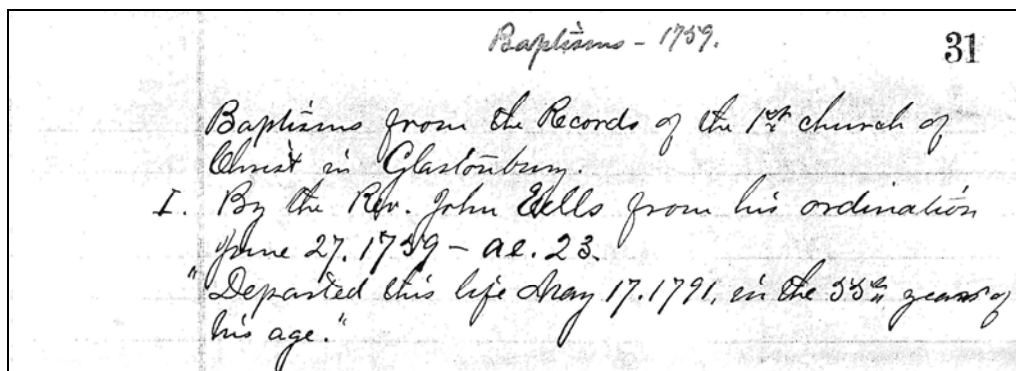 Baptisms - 1759.
31
Baptisms from the Records of the 1st church of
Christ in Glastonbury.
I. By the Rev. John Eells from his ordination
June 27. 1759 - ae. 23.
"Departed this life May 17. 1791, in the 55th years of
his age."